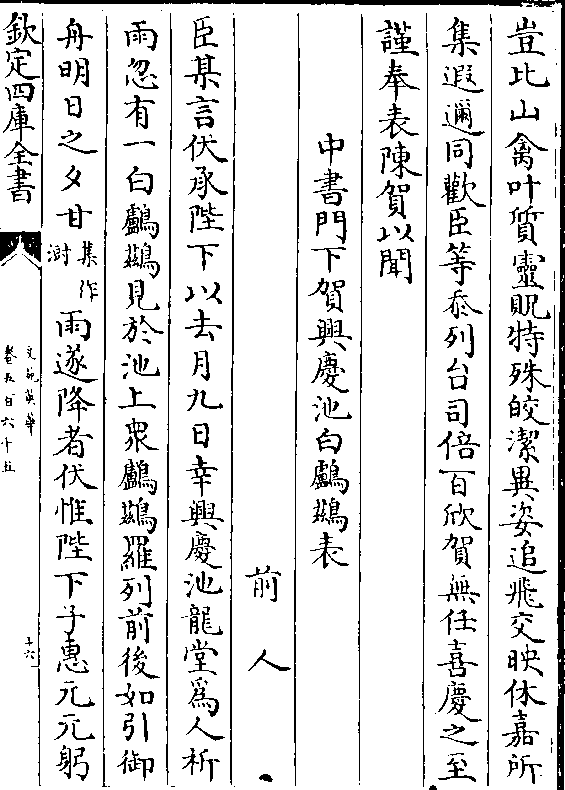 豈比山禽叶質靈貺特殊皎潔異姿追飛交映休嘉所
集遐邇同歡臣等忝列台司倍百欣賀無任喜慶之至
謹奉表陳賀以聞
中書門下賀興慶池白鸕鷀表
前人
臣某言伏承陛下以去月九日幸興慶池龍堂爲人析
雨忽有一白鸕鷀見於池上衆鸕鷀羅列前後如引御
舟明日之夕甘集作澍雨遂降者伏惟陛下子惠元元躬
欽定四庫全書
文苑英華
卷五百六十五
十六